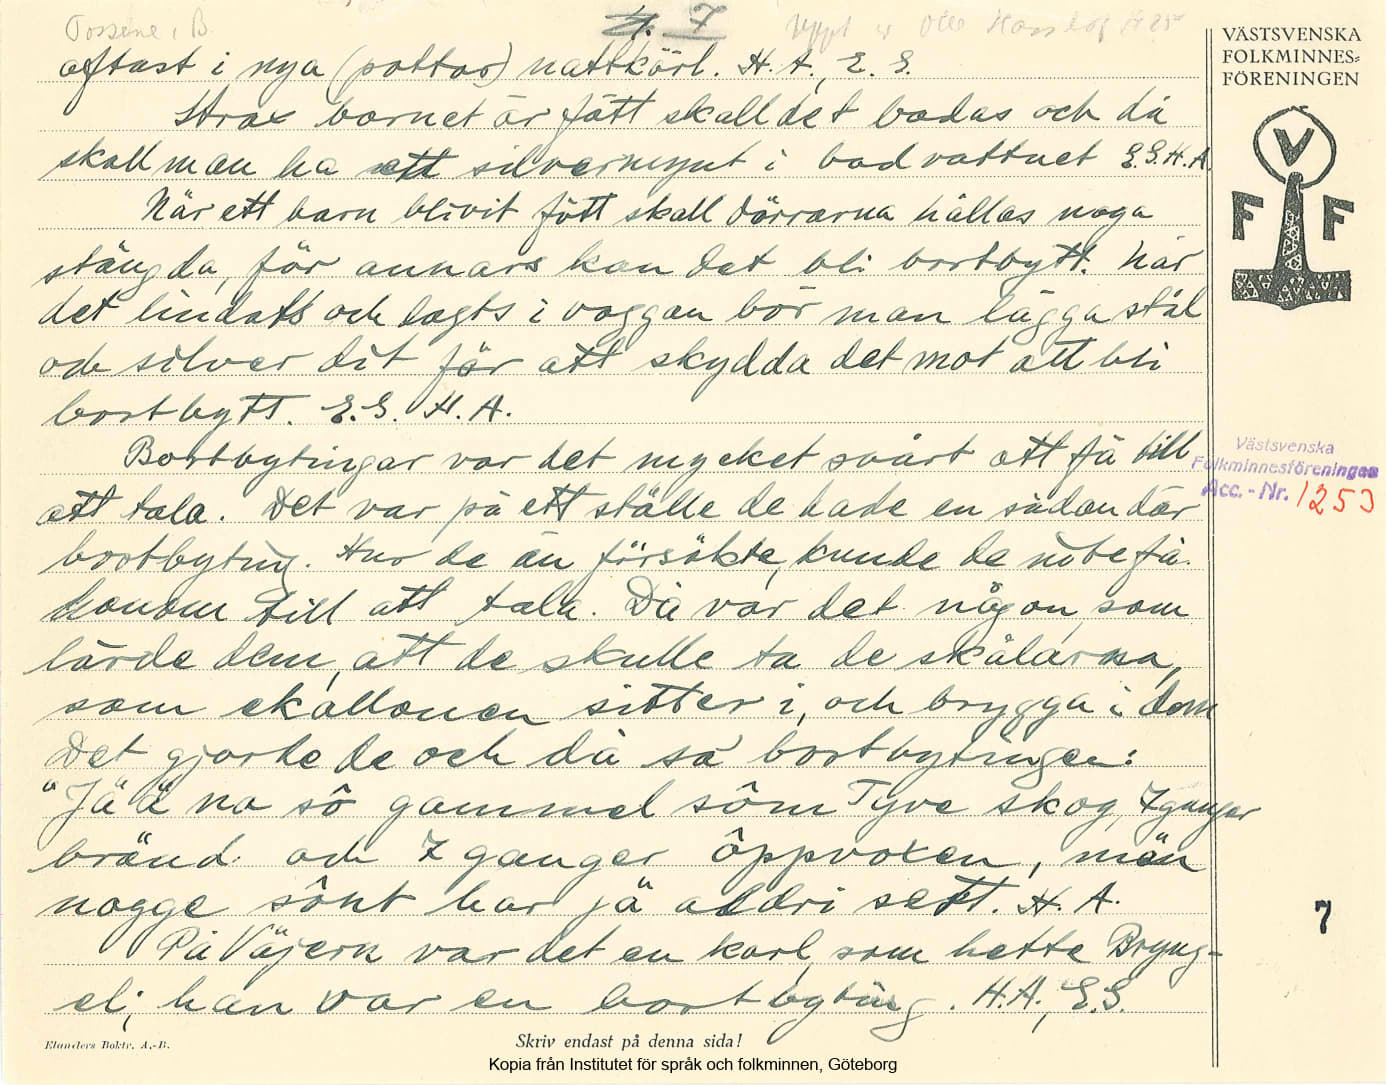 Tossene, B
4. 7
Uppt av Olle Hasslöf
VÄSTSVENSKA
FOLKMINNES=
FÖRENINGEN
V
F F
oftast i nya (pottor) nattkärl. H. A., E. G.
Strax barnet är fött skall det badas och då
skall man ha ett silvermynt i badvattnet E.G. H.A.
När ett barn blivit fött skall dörrarna hållas noga
stängda, för annars kan det bli bortbytt. När
det lindats och lagts i vaggan bör man lägga stål
och silver dit för att skydda det mot att bli
bortbytt. E.G. H.A.
Bortbytingar var det mycket svårt att få till
att tala. Det var på ett ställe de hade en sådan där
bortbyting. Hur de än försökte, kunde de inte få
honom till att tala. Då var det någon, som
lärde dem, att de skulle ta de skålarna,
som ekållonen sitter i, och brygga i dem
Det gjorde de och då sa bortbytingen:
"Jä ä na sô gammel sôm Tyve skog, 7 ganger
bränd och 7 ganger ôppvoxen, män
nogge sônt har jä aldri sett. H. A.
På Väjern var det en karl, som hette Bryng-
el; han var en bortbyting. H.A., E.G.
Västsvenska
Folkminnesföreningen
Acc.-Nr. 1253
7
Elanders Boktr. A.-B.
Skriv endast på denna sida!
Kopia från Institutet för språk och folkminnen, Göteborg